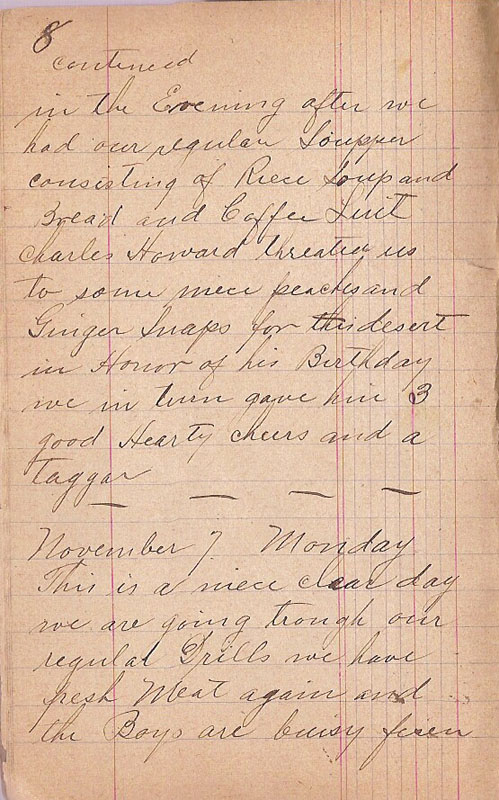 8
conteneed
in the Evening after we
had our regular Soupper
consisting of Riece Soup and
Bread and Coffee Liut
Charles Howard threated us
to some niece peaches and
Ginger Snaps for this desert
in Honor of his Birthday
we in turn gave him 3
good Hearty cheers and a
taggar
November 7. Monday
This is a niece clear day
we are going trough our
regular Drills we have
fresh Meat again and
the Boys are buisy